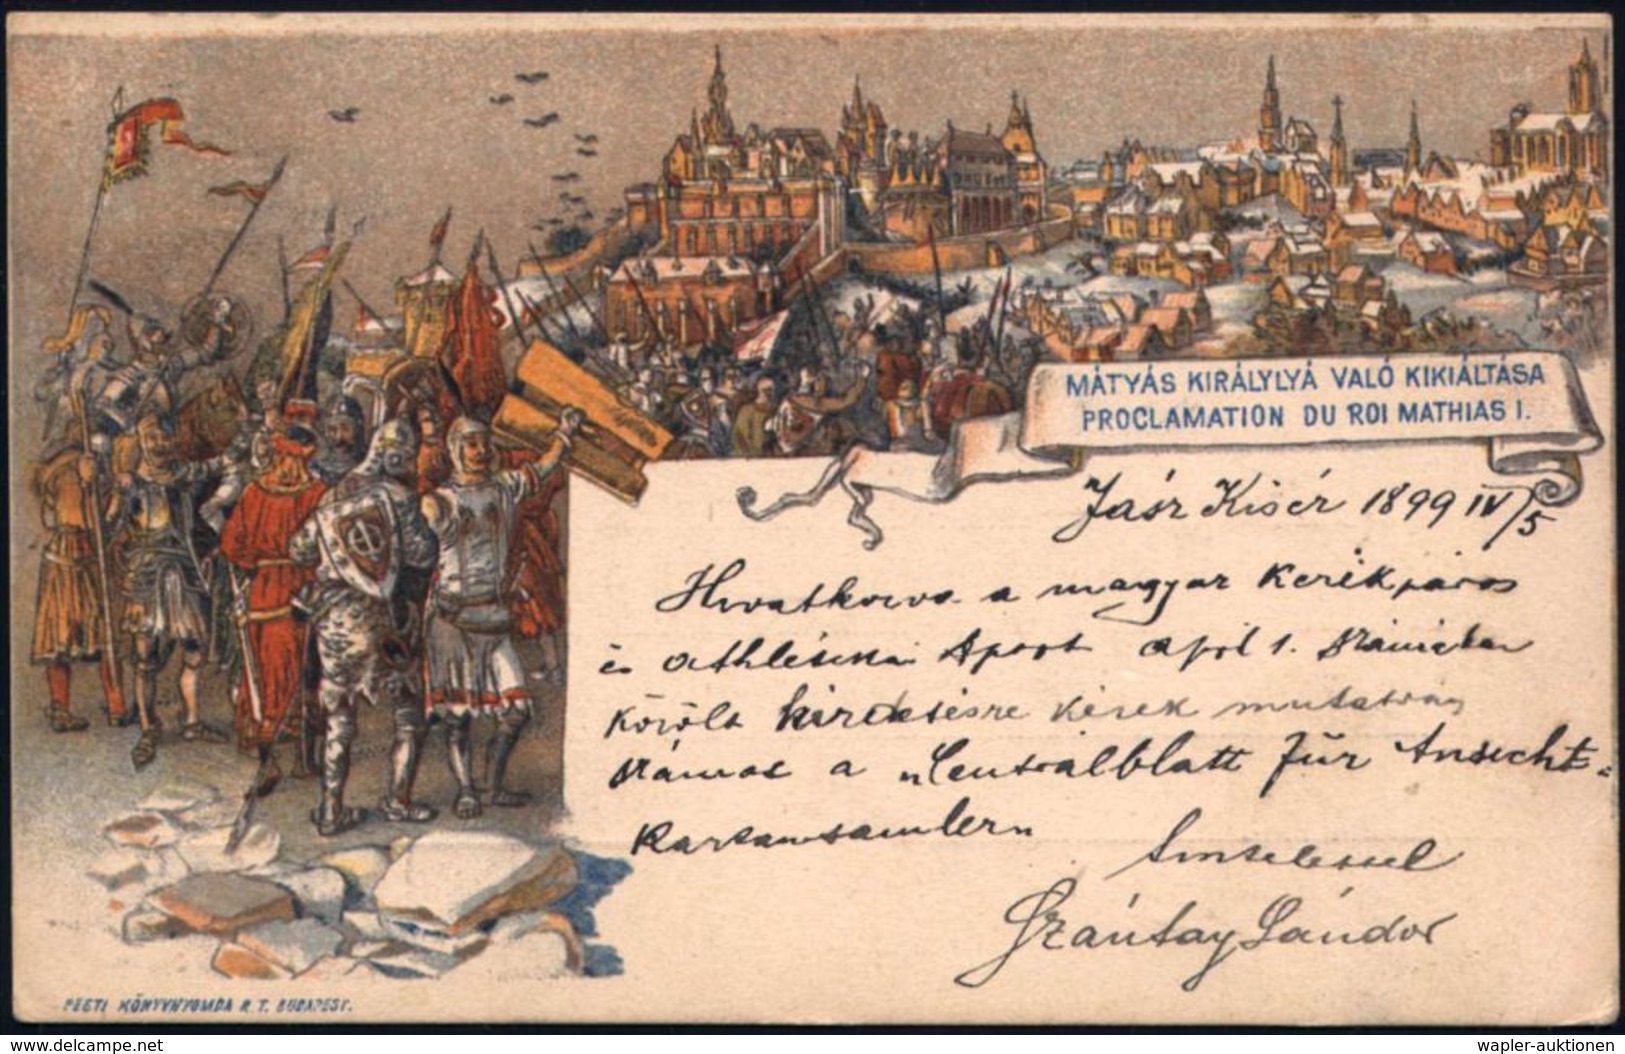 MÁTYÁS KIRÁLYLYÁ VALÓ KIKIÁLTÁSA
PROCLAMATION DU ROI MATHIAS I.
Jász Kisér 1899 IV/5
Hivatkozva a magyar kerékpáros
és athlétikai sport april 1. számában
közölt hirdetésre kérek mutatvány
számot a „Centralblatt für Ansicht-
kartensammlern
tisztelettel
Szántay Sándor
PESTI KÖNYVNYOMDA R. T. BUDAPEST.
www.delcampe.net
wapler-auktionen